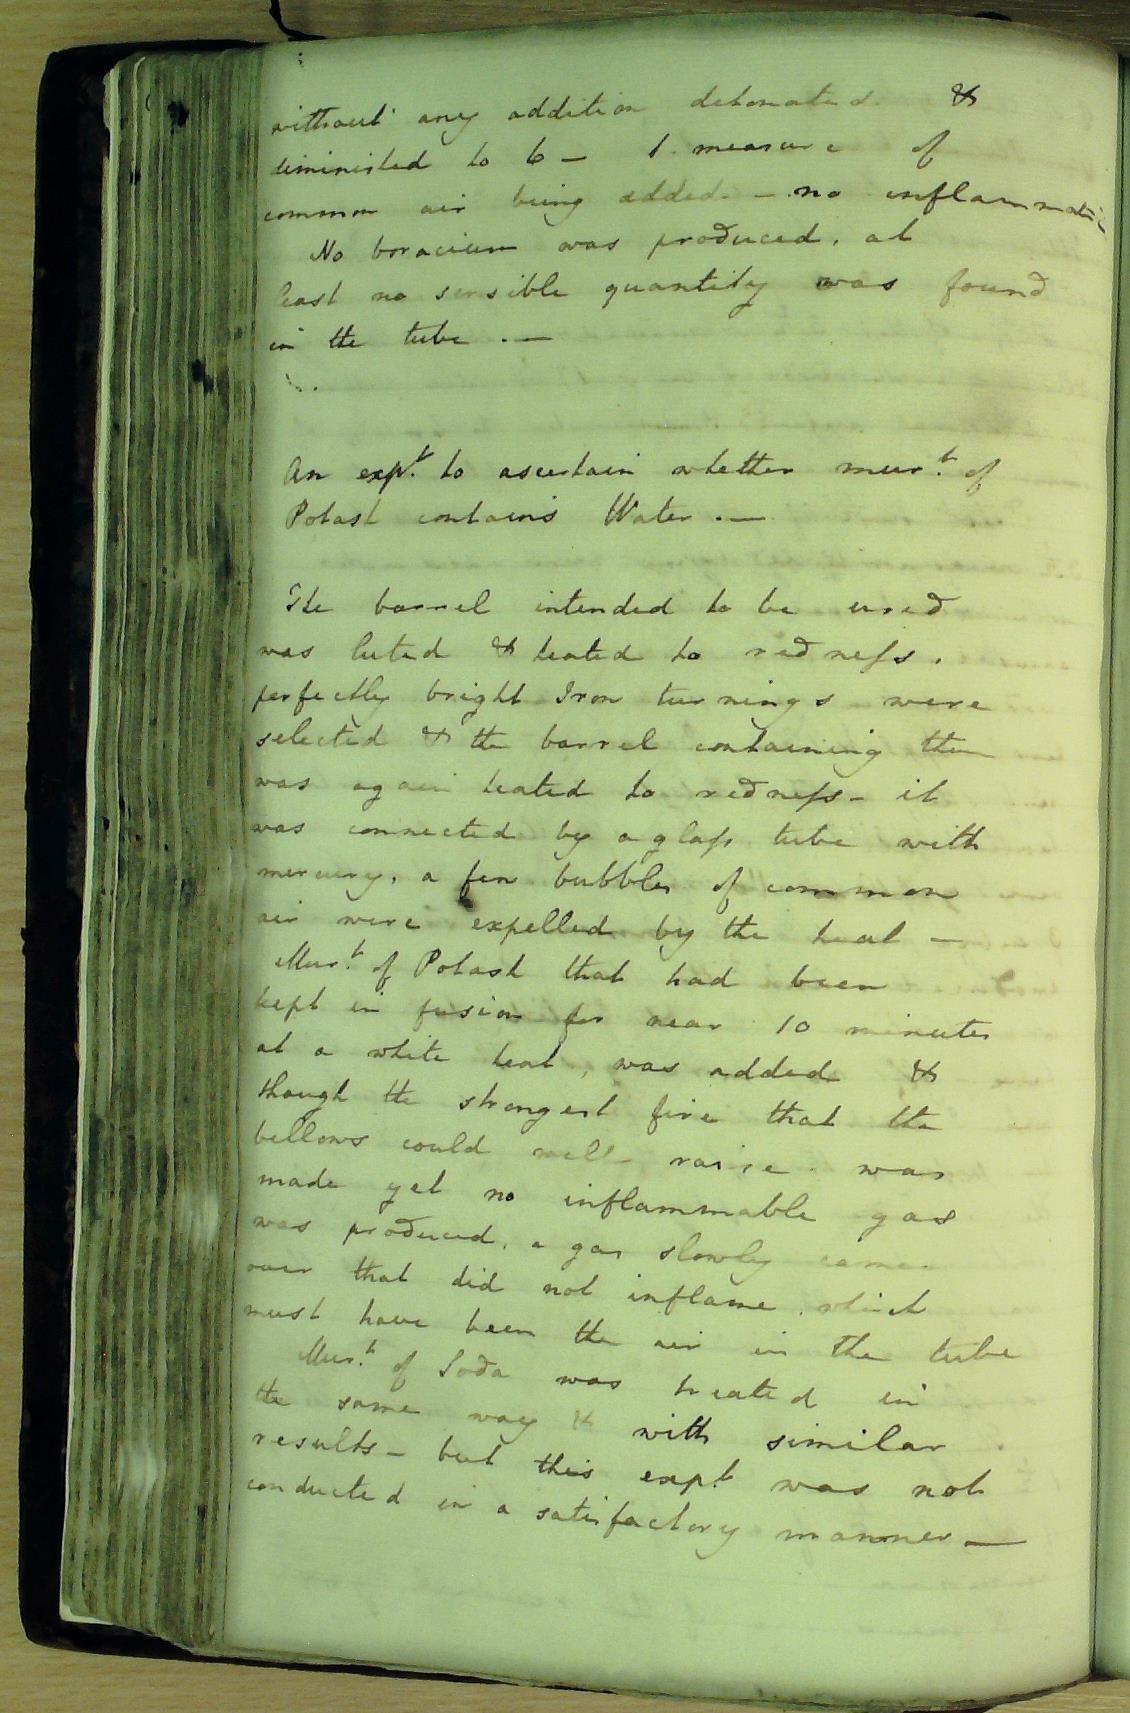 without any addition detonated &
diminished to 6 — 1 measure of
common air being added. — no inflammatio
No boracium was produced, at
least no sensible quantity was found
in the tube . —
An expt. to ascertain whether murt. of
Potash contains Water . —
The barrel intended to be used
was luted & heated to redness.
perfectly bright Iron turnings were
selected & the barrel containing them
was again heated to redness - it
was connected by a glass tube with
mercury, a few bubbles of common
air were expelled by the heat —
Murt. of Potash that had been
kept in fusion for near 10 minutes
at a white heat, was added &
though the strongest fire that the
bellows could well raise was
made yet no inflammable gas
was produced, a gas slowly came
over that did not inflame which
must have been the air in the tube
Murt. of Soda was treated in
the same way & with similar
results - but this expt was not
conducted in a satisfactory manner —